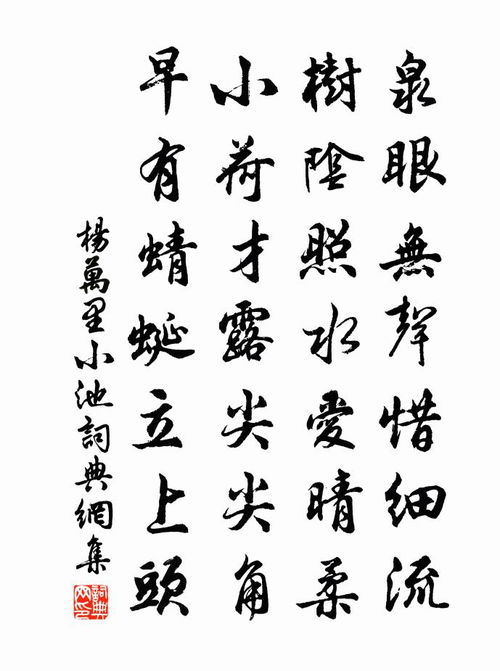 泉眼無聲惜細流
樹陰照水愛晴柔
小荷才露尖尖角
早有蜻蜓立上頭
楊萬里小池詞典網集
詞典網印